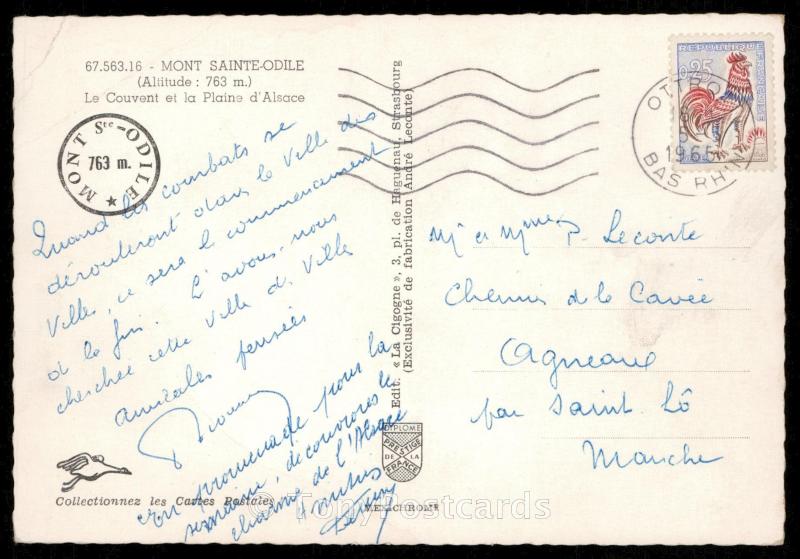 67.563.16 - MONT SAINTE-ODILE
(Altitude : 763 m.)
Le Couvent et la Plaine d'Alsace
MONT Ste-ODILE
763 m.
Quand les combats se
dérouleront dans la Ville des
Villes, ce sera le commencement
de la fin. L'avons-nous
cherchée cette Ville des Villes
amicales pensées
En promenade pour la
semaine, découvrons le
charme de l'Alsace
Collectionnez les Cartes Postales
Edit. « La Cigogne », 3, pl. de Haguenau, Strasbourg
(Exclusivité de fabrication André Leconte)
DIPLOME
PRESTIGE
DE LA
FRANCE
MEXICHROME
REPUBLIQUE FRANÇAISE
0,25
OTTRO
1965
BAS RHIN
Mr et Mme P. Leconte
Chemin de la Cavée
Agneaux
par Saint. Lô
Manche
© TonyPostcards